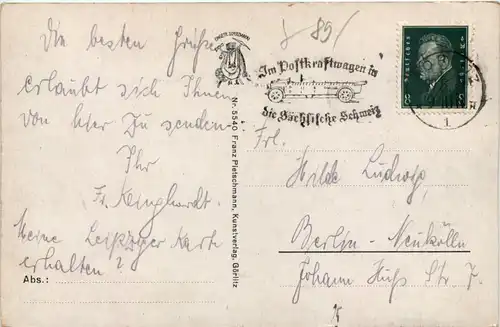 Die besten Grüße
erlaubt sich Ihnen
von hier zu senden
Ihr
Fr.
Meine Leipziger Karte
erhalten?
Abs.:
Nr. 5540 Franz Pietschmann, Kunstverlag, Görlitz
89/
Im Postkraftwagen in
die Sächsische Schweiz
Deutsches Reich
8 8
1
Frl.
Hilde Ludwig,
Berlin-Neukölln
Johann Huß Str. 7.